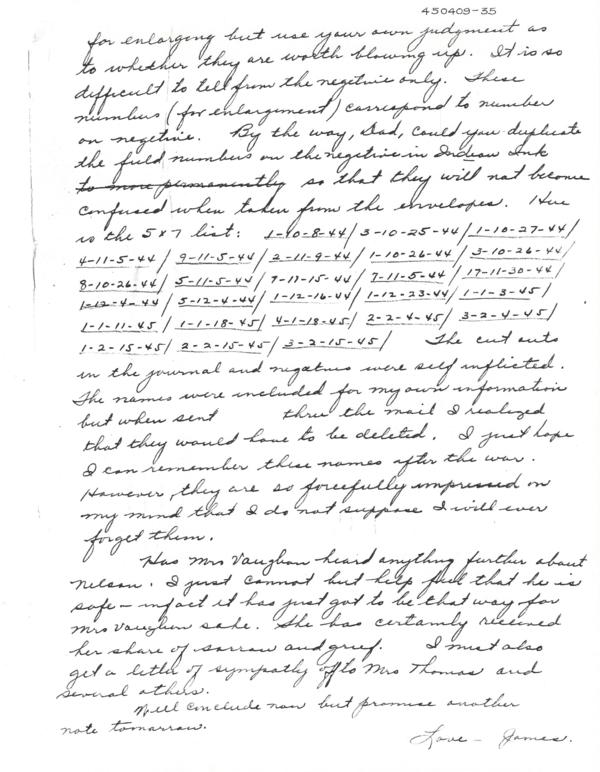 450409-35
for enlarging but use your own judgment as
to whether they are worth blowing up. It is so
difficult to tell from the negitive only. These
numbers (for enlargement) correspond to number
on negitive. By the way, Dad, could you duplicate
the field numbers on the negetive in Indian Ink
to more permanently so that they will not become
confused when taken from the envelopes. Here
is the 5x7 list: 1-10-8-44/ 3-10-25-44/ 1-10-27-44/
4-11-5-44/ 9-11-5-44/ 2-11-9-44/ 1-10-26-44/ 3-10-26-44/
8-10-26-44/ 5-11-5-44/ 7-11-15-44/ 7-11-5-44/ 17-11-30-44/
1-12-4-44/ 5-12-4-44/ 1-12-16-44/ 1-12-23-44/ 1-1-3-45/
1-1-11-45/ 1-1-18-45/ 4-1-18-45/ 2-2-4-45/ 3-2-4-45/
1-2-15-45/ 2-2-15-45/ 3-2-15-45/ The cut outs
in the journal and negatives were self inflicted.
The names were included for my own information
but when sent thru the mail I realized
that they would have to be deleted. I just hope
I can remember these names after the war.
However, they are so forcefully impressed on
my mind that I do not suppose I will ever
forget them.
Has Mrs Vaughan heard anything further about
Nelson. I just cannot but help feel that he is
safe - infact it has just got to be that way for
Mrs Vaughan sake. She has certainly received
her share of sorrow and grief. I must also
get a letter of sympathy off to Mrs Thomas and
several others.
Will conclude now but promise another
note tomarrow.
Love - James.